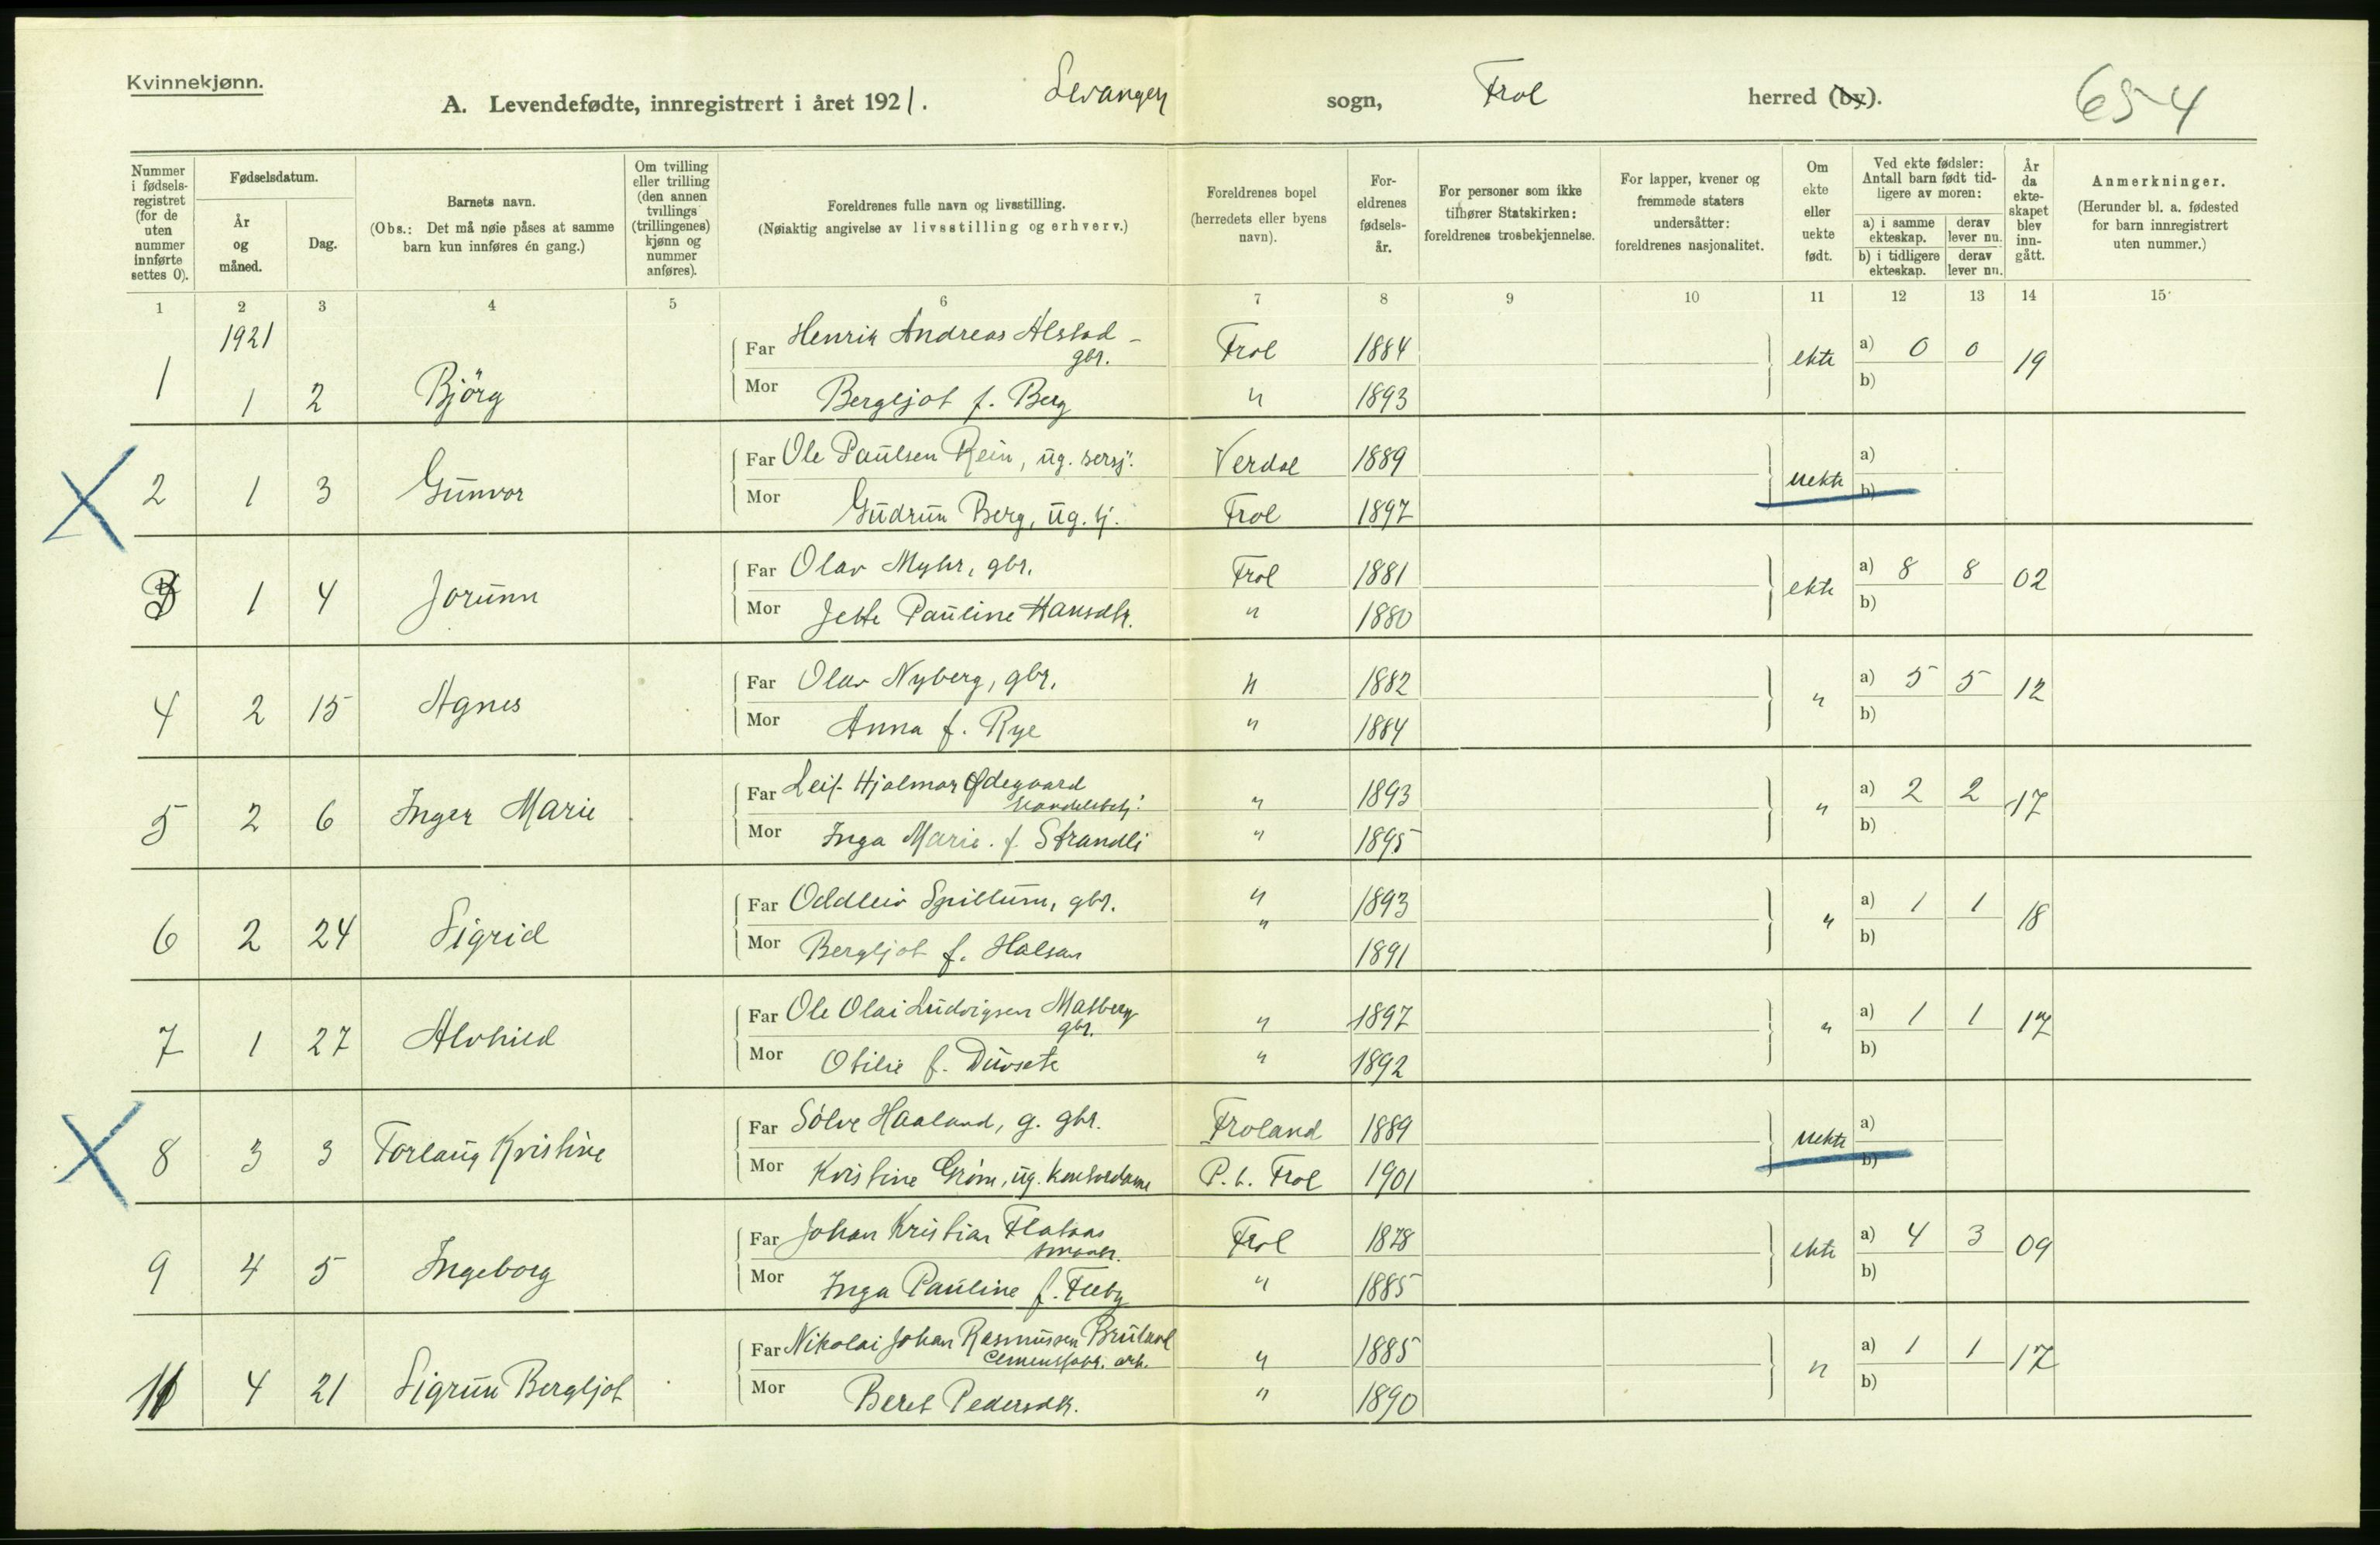 Kvinnekjønn.
A. Levendefødte, innregistrert i året 1921. Levanger sogn, Frol herred (by). 654
Nummer i fødsels-registret (for de uten nummer innførte settes 0).
Fødselsdatum.
År og måned.
Dag.
Barnets navn.
(Obs.: Det må nøie påses at samme barn kun innføres én gang.)
Om tvilling eller trilling (den annen tvillings (trillingenes) kjønn og nummer anføres).
Foreldrenes fulle navn og livsstilling.
(Nøiaktig angivelse av livsstilling og erhverv.)
Foreldrenes bopel (herredets eller byens navn).
For-eldrenes fødsels-år.
For personer som ikke tilhører Statskirken: foreldrenes trosbekjennelse.
For lapper, kvener og fremmede staters undersåtter: foreldrenes nasjonalitet.
Om ekte eller uekte født.
Ved ekte fødsler: Antall barn født tid-ligere av moren:
a) i samme ekteskap. derav lever nu.
b) i tidligere ekteskap. derav lever nu.
År da ekte-skapet blev inn-gått.
Anmerkninger.
(Herunder bl. a. fødested for barn innregistrert uten nummer.)
1 2 3 4 5 6 7 8 9 10 11 12 13 14 15
1921
Far Henrik Andreas Alstad - gbr. Frol 1884 ekte a) 0 0 19
1 1 2 Björg
Mor Bergljot f. Berg " 1893 b)
Far Ole Paulsen Rein, ug. Verdal 1889 uekte a)
2 1 3 Gunvor
Mor Gudrun Berg, ug. tj. Frol 1897 b)
Far Olav Myhr, gbr. Frol 1881 ekte a) 8 8 02
3 1 4 Jorunn
Mor Jette Pauline Hansdtr. " 1880 b)
Far Olav Nyberg, gbr. " 1882 " a) 5 5 12
4 2 15 Agnes
Mor Anna f. Rye " 1884 b)
Far Leif Hjalmar Ødegaard Handelsbetj. " 1893 " a) 2 2 17
5 2 6 Inger Marie
Mor Inga Marie f. Strandli " 1895 b)
Far Oddleiv Spillum, gbr. " 1893 " a) 1 1 18
6 2 24 Sigrid "
Mor Bergljot f. Halsan 1891 b)
Far Ole Olai Ludvigsen Matberg gbr. " 1897 " a) 1 1 17
7 1 27 Alvhild
Mor Otilie f. " 1892 b)
Far Sölve Haaland, g. gbr. Froland 1889 uekte a)
8 3 3 Torlaug Kristine
Mor Kristine Gröm, ug. kontordame P. t. Frol 1901 b)
Far Johan Kristian Flataas Frol 1878 ekte a) 4 3 09
9 4 5 Ingeborg
Mor Inga Pauline f. " 1885 b)
Far Nikolai Johan Rasmussen Cementfabr. arb. " 1885 " a) 1 1 17
4 21 Sigrun Bergljot
Mor Beret Pedersdtr. " 1890 b)